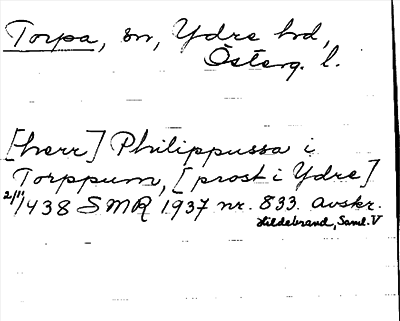 Torpa, sn, Ydre hd,
Österg. l.
[herr] Philippussa i
Torppum, [prost i Ydre]
2/11 1438 SMR 1937 nr. 833. avskr.
Hildebrand, Saml. V